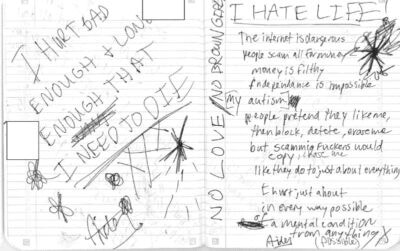 I HURT BAD
ENOUGH & LONG
ENOUGH THAT
I NEED TO DIE
NO LOVE NO
I HATE LIFE
The internet is dangerous
people scam all for money
money is filthy
independance is impossible
My autism
people pretend they like me,
then block, delete, erase me
but scammig fuckers would
copy, chase me
like they do to just about everything
I hurt just about
in every way possible
of a mental condition
from anything
possible)